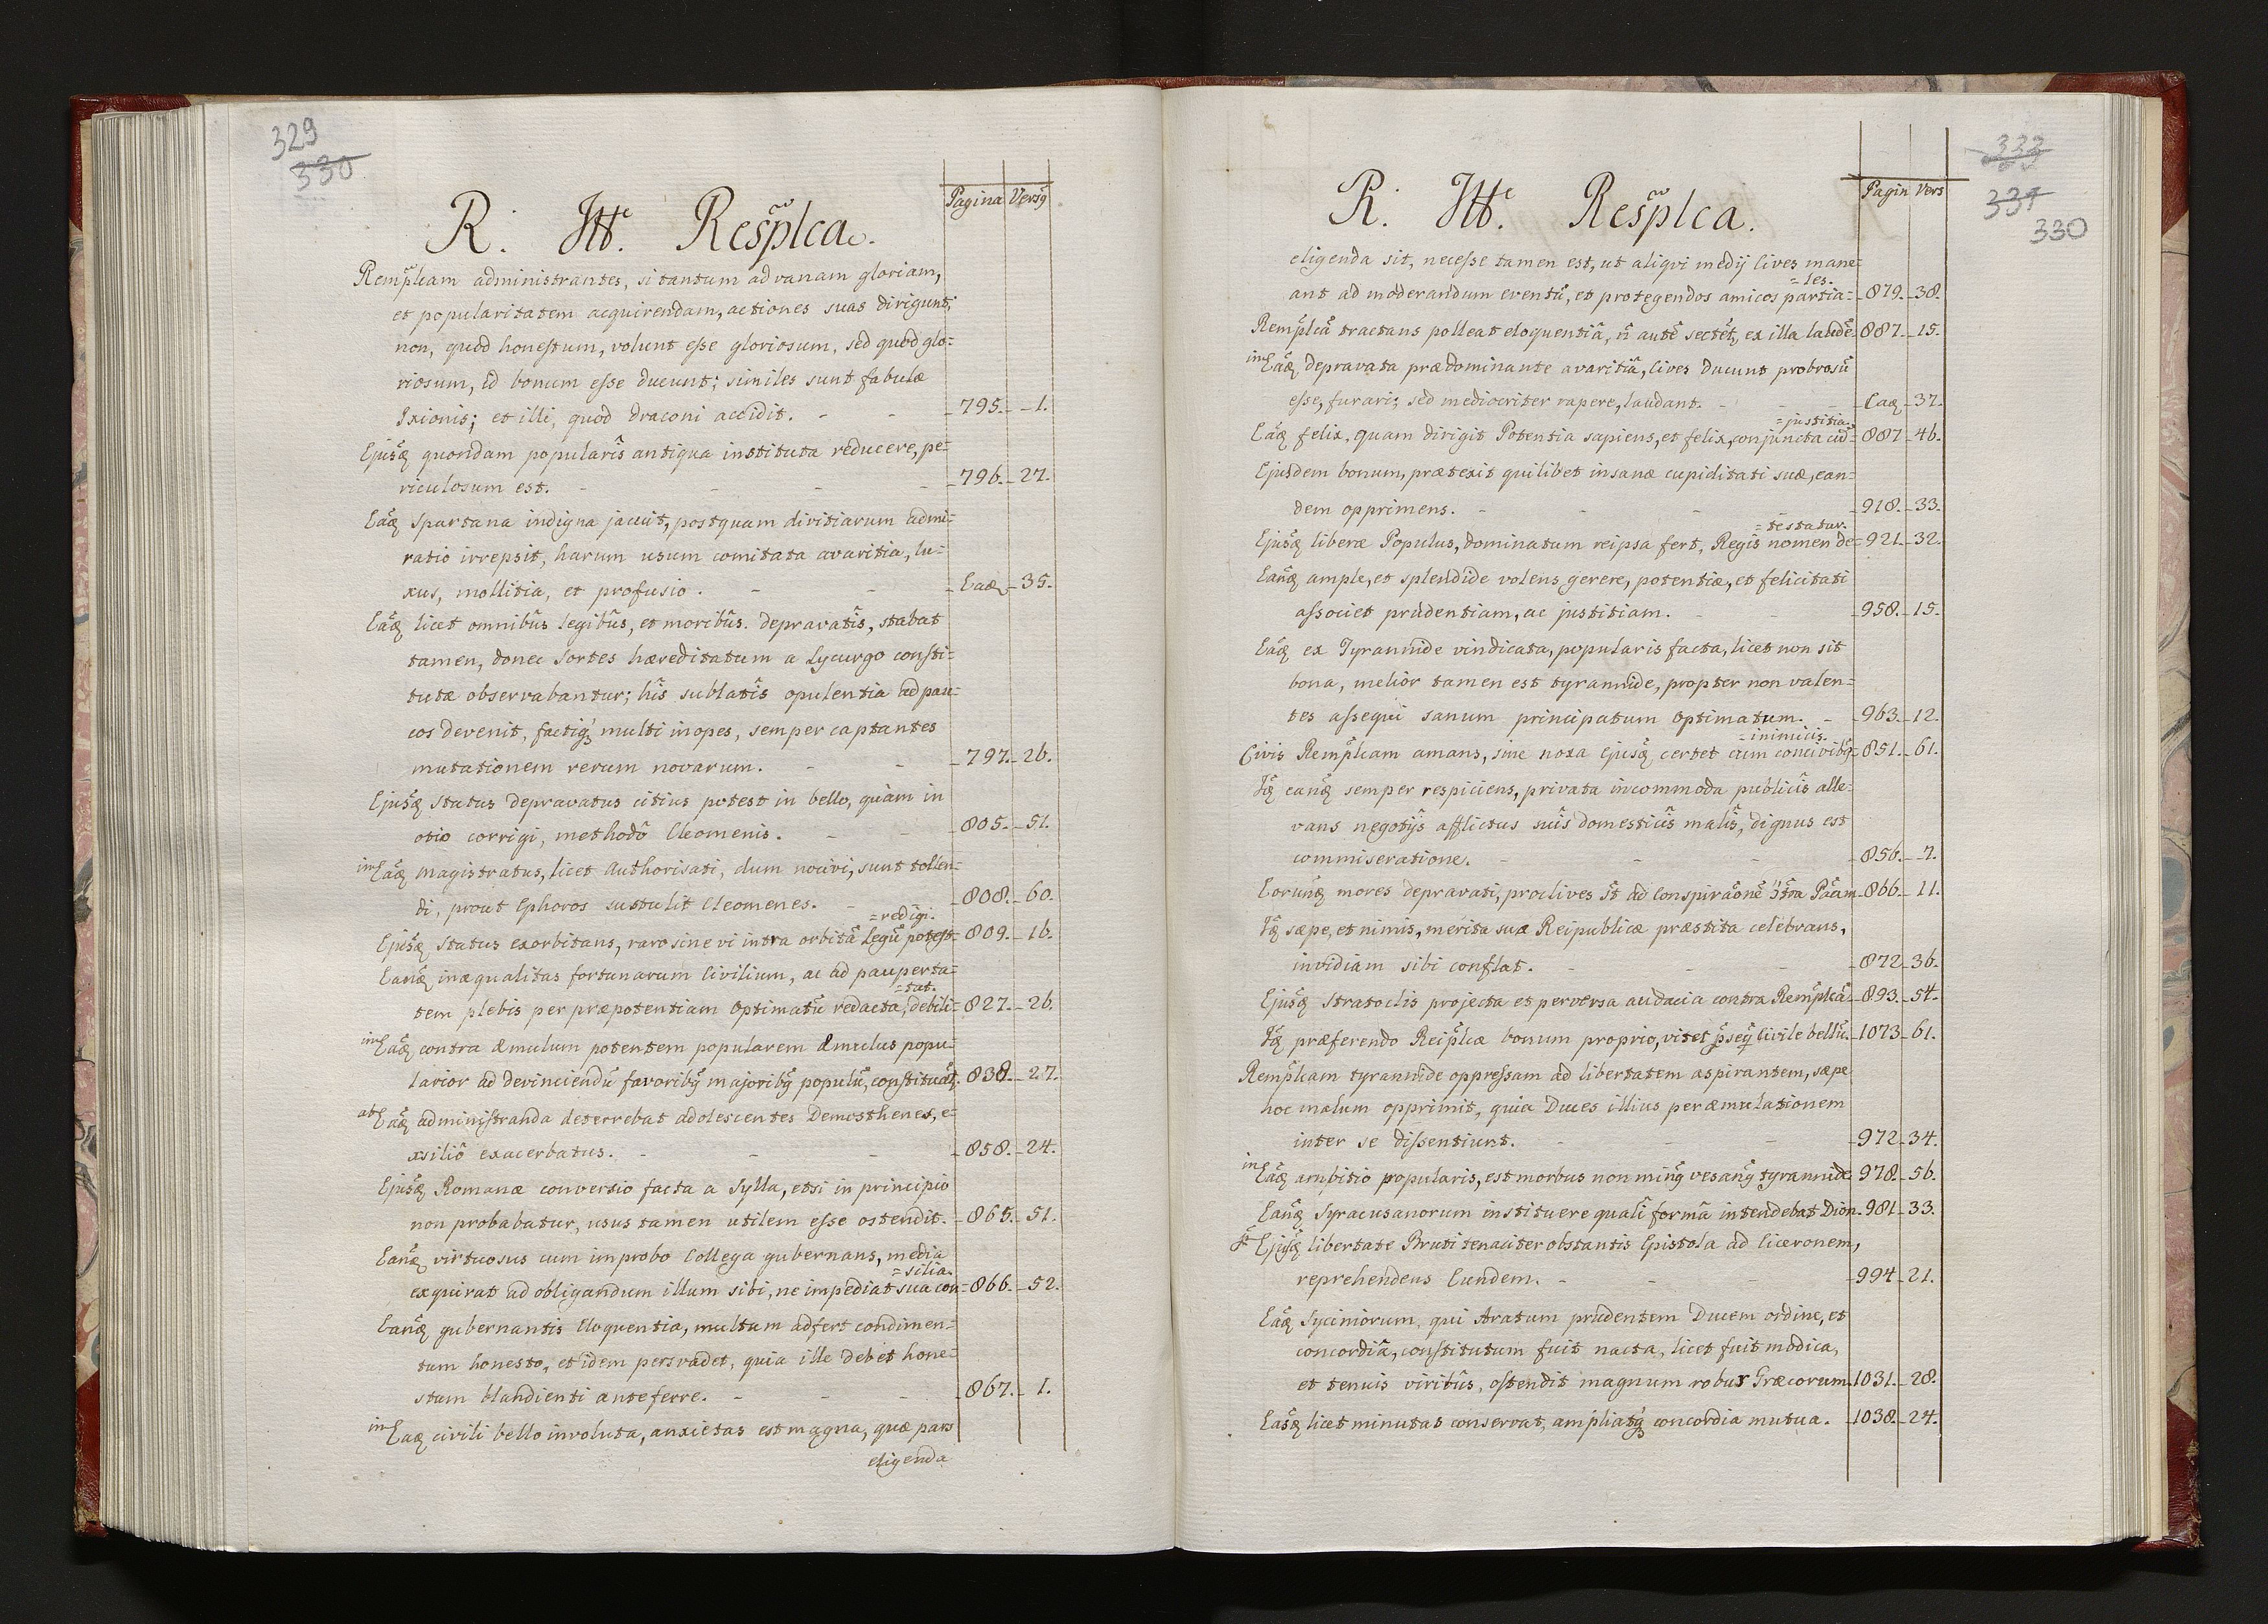 329
330
Pagina Versꝰ
R. Itt͏ͤ. Resp̃lca.
Remp̃lcam administrantes, si tantum ad vanam gloriam,
et popularitatem acquirendam, actiones suas dirigunt;
non, quod honestum, volunt esse gloriosum, sed quod glo=
riosum, id bonum esse ducunt; similes sunt fabulæ
Ixionis; et illi, quod draconi accidit. - - - 795. - 1.
Ejusq̃ quondam popularis antiqua instituta reducere, pe=
riculosum est. - - - - 796. - 27.
Eaq̃ Spartana indigna jacuit, postquam divitiarum admi=
ratio irrepsit, harum usum comitata avaritia, lu=
xus, mollitia, et profusio. - - - Eaq̃ - 35.
Eaq̃ licet omnibûs legibûs, et moribûs depravatîs, stabat
tamen, donec sortes hæreditatum a Lycurgo consti=
tutæ observabantur; hîs sublatîs opulentia ad pau=
cos devenit, factiq; multi inopes, semper captantes
mutationem rerum novarum. - - - 797. - 26.
Ejusq̃ status depravatus citius potest in bello, quàm in
otio corrigi, methodô Cleomenis. - - - 805. - 51.
in Eaq̃ Magistratus, licet Authorisati, dum nocivi, sunt tollen=
di, prout Ephoros sustulit Cleomenes. - - 808. - 60.
=redigi.
Ejusq̃ status exorbitans, raro sine vi intra orbitã Legũ potest= 809. - 16.
Eanq̃ inæqualitas fortunarum Civilium, ac ad pauperta=
=tat.
tem plebis per præpotentiam Optimatũ redacta, debili= 827. - 26.
in Eaq̃ contra æmulum potentem popularem æmulus popu=
larior ad devinciendũ favoribꝰ majoribꝰ populũ, constituat̃. 838. - 27.
ab Eaq̃ administranda deterrebat adolescentes Demosthenes, e=
xsiliô exacerbatus. - - - 858. - 24.
Ejusq̃ Romanæ conversio facta a Sylla, etsi in principio
non probabatur, usus tamen utilem esse ostendit. - 865. - 51.
Eanq̃ virtuosus cum improbo Collega gubernans, media
=silia.
exquirat ad obligandum illum sibi, ne impediat sua con= 866. - 52.
Eanq̃ gubernantis Eloquentia, multum adfert condimen=
tum honesto, et idem persvadet, quia ille debet hone=
stum blandienti anteferre. - - - 867. - 1.
in Eaq̃ civili bello involuta, anxietas est magna, quæ pars
eligenda
333
331
330
Pagin Vers
R. Itt͏ͤ. Resp̃lca.
eligenda sit, necesse tamen est, ut aliqvi medij Cives mane=
=les.
ant ad moderandum eventũ, et protegendos amicos partia= 879. - 38.
Remp̃lcã tractans polleat eloquentiâ, ñ autẽ sectet̃, ex illa laudẽ 887. - 15.
in Eaq̃ depravata prædominante avaritiâ, Cives ducunt probrosũ
esse, furari; sed mediocriter rapere, laudant. - - - Eaq̃ - 37.
=justitia.
Eaq̃ felix, quam dirigit Potentia sapiens, et felix, conjuncta cũ= 887 - 46.
Ejusdem bonum, prætexit quilibet insanæ cupiditati suæ, ean=
dem opprimens. - - - - 918. - 33.
=testatur.
Ejusq̃ liberæ Populus, dominatum reipsa fert, Regis nomen de= 921. - 32.
Eanq̃ ample, et splendide volens gerere, potentiæ, et felicitati
associet prudentiam, ac justitiam. - - 958. - 15.
Eaq̃ ex Tyrannide vindicata, popularis facta, licet non sit
bona, melior tamen est tyrannide, propter non valen=
tes assequi sanum principatum Optimatum. - 963. - 12.
=inimicis.
Civis Remp̃lcam amans, sine noxa Ejusq̃ certet cum concivibꝰ= 851. - 61.
Iq̃ eanq̃ semper respiciens, privata incommoda publicîs alle=
vans negotijs afflictus suîs domesticîs malîs, dignus est
commiseratione. - - - 856. - 7.
Eorunq̃ mores depravati, proclives st̃ ad Conspiraõnẽ Patriam 866. - 11.
Iq̃ sæpe, et nimis, merita suæ Reipublicæ præstita celebrans,
invidiam sibi conflat. - - - 872 - 36.
Ejusq̃ Stratoclis projecta et perversa audacia contra Remp̃lcã 893. - 54.
Iq̃ præferendo Reip̃lcæ bonum proprio, vitet p̃seq̃ Civile bellũ. 1073 - 61.
Remp̃lcam tyrannide oppressam ad libertatem aspirantem, sæpe
hoc malum opprimit, quia Duces illius per æmulationem
inter se dissentiunt. - - - 972 - 34.
in Eaq̃ ambitio popularis, est morbus non minꝰ vesanꝰ tyrannide 978. - 56.
Eanq̃ Syracusanorum instituere quali formâ intendebat Dion. 981 - 33.
Ejusq̃ libertate Bruti tenaciter obstantis Epistola ad Ciceronem,
reprehendens Eundem. - - - 994 - 21.
Eaq̃ Syciniorum, qui Aratum prudentem Ducem ordine, et
concordiâ, constitutum fuit nacta, licet fuit modica,
et tenuis viribûs, ostendit magnum robur Græcorum. 1031. - 28.
Easq̃ licet minutas conservat, ampliatq; concordia mutua. - 1038. - 24.